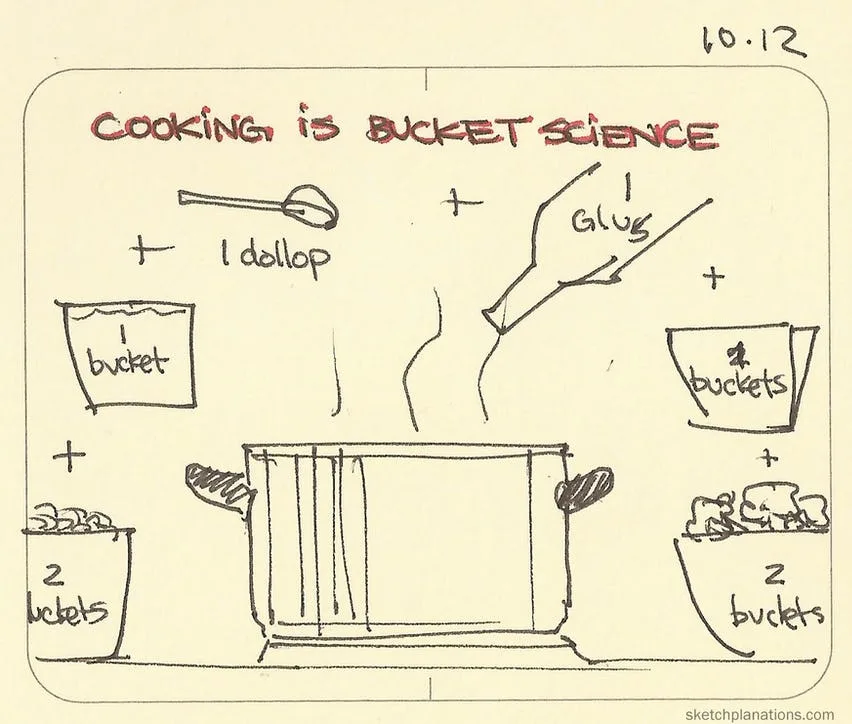 10.12
COOKING iS BUCKET SCiENCE
+
1
Glug
+
1 dollop
+
1
bucket
buckets
+
+
2
uckets
2
buckets
sketchplanations.com